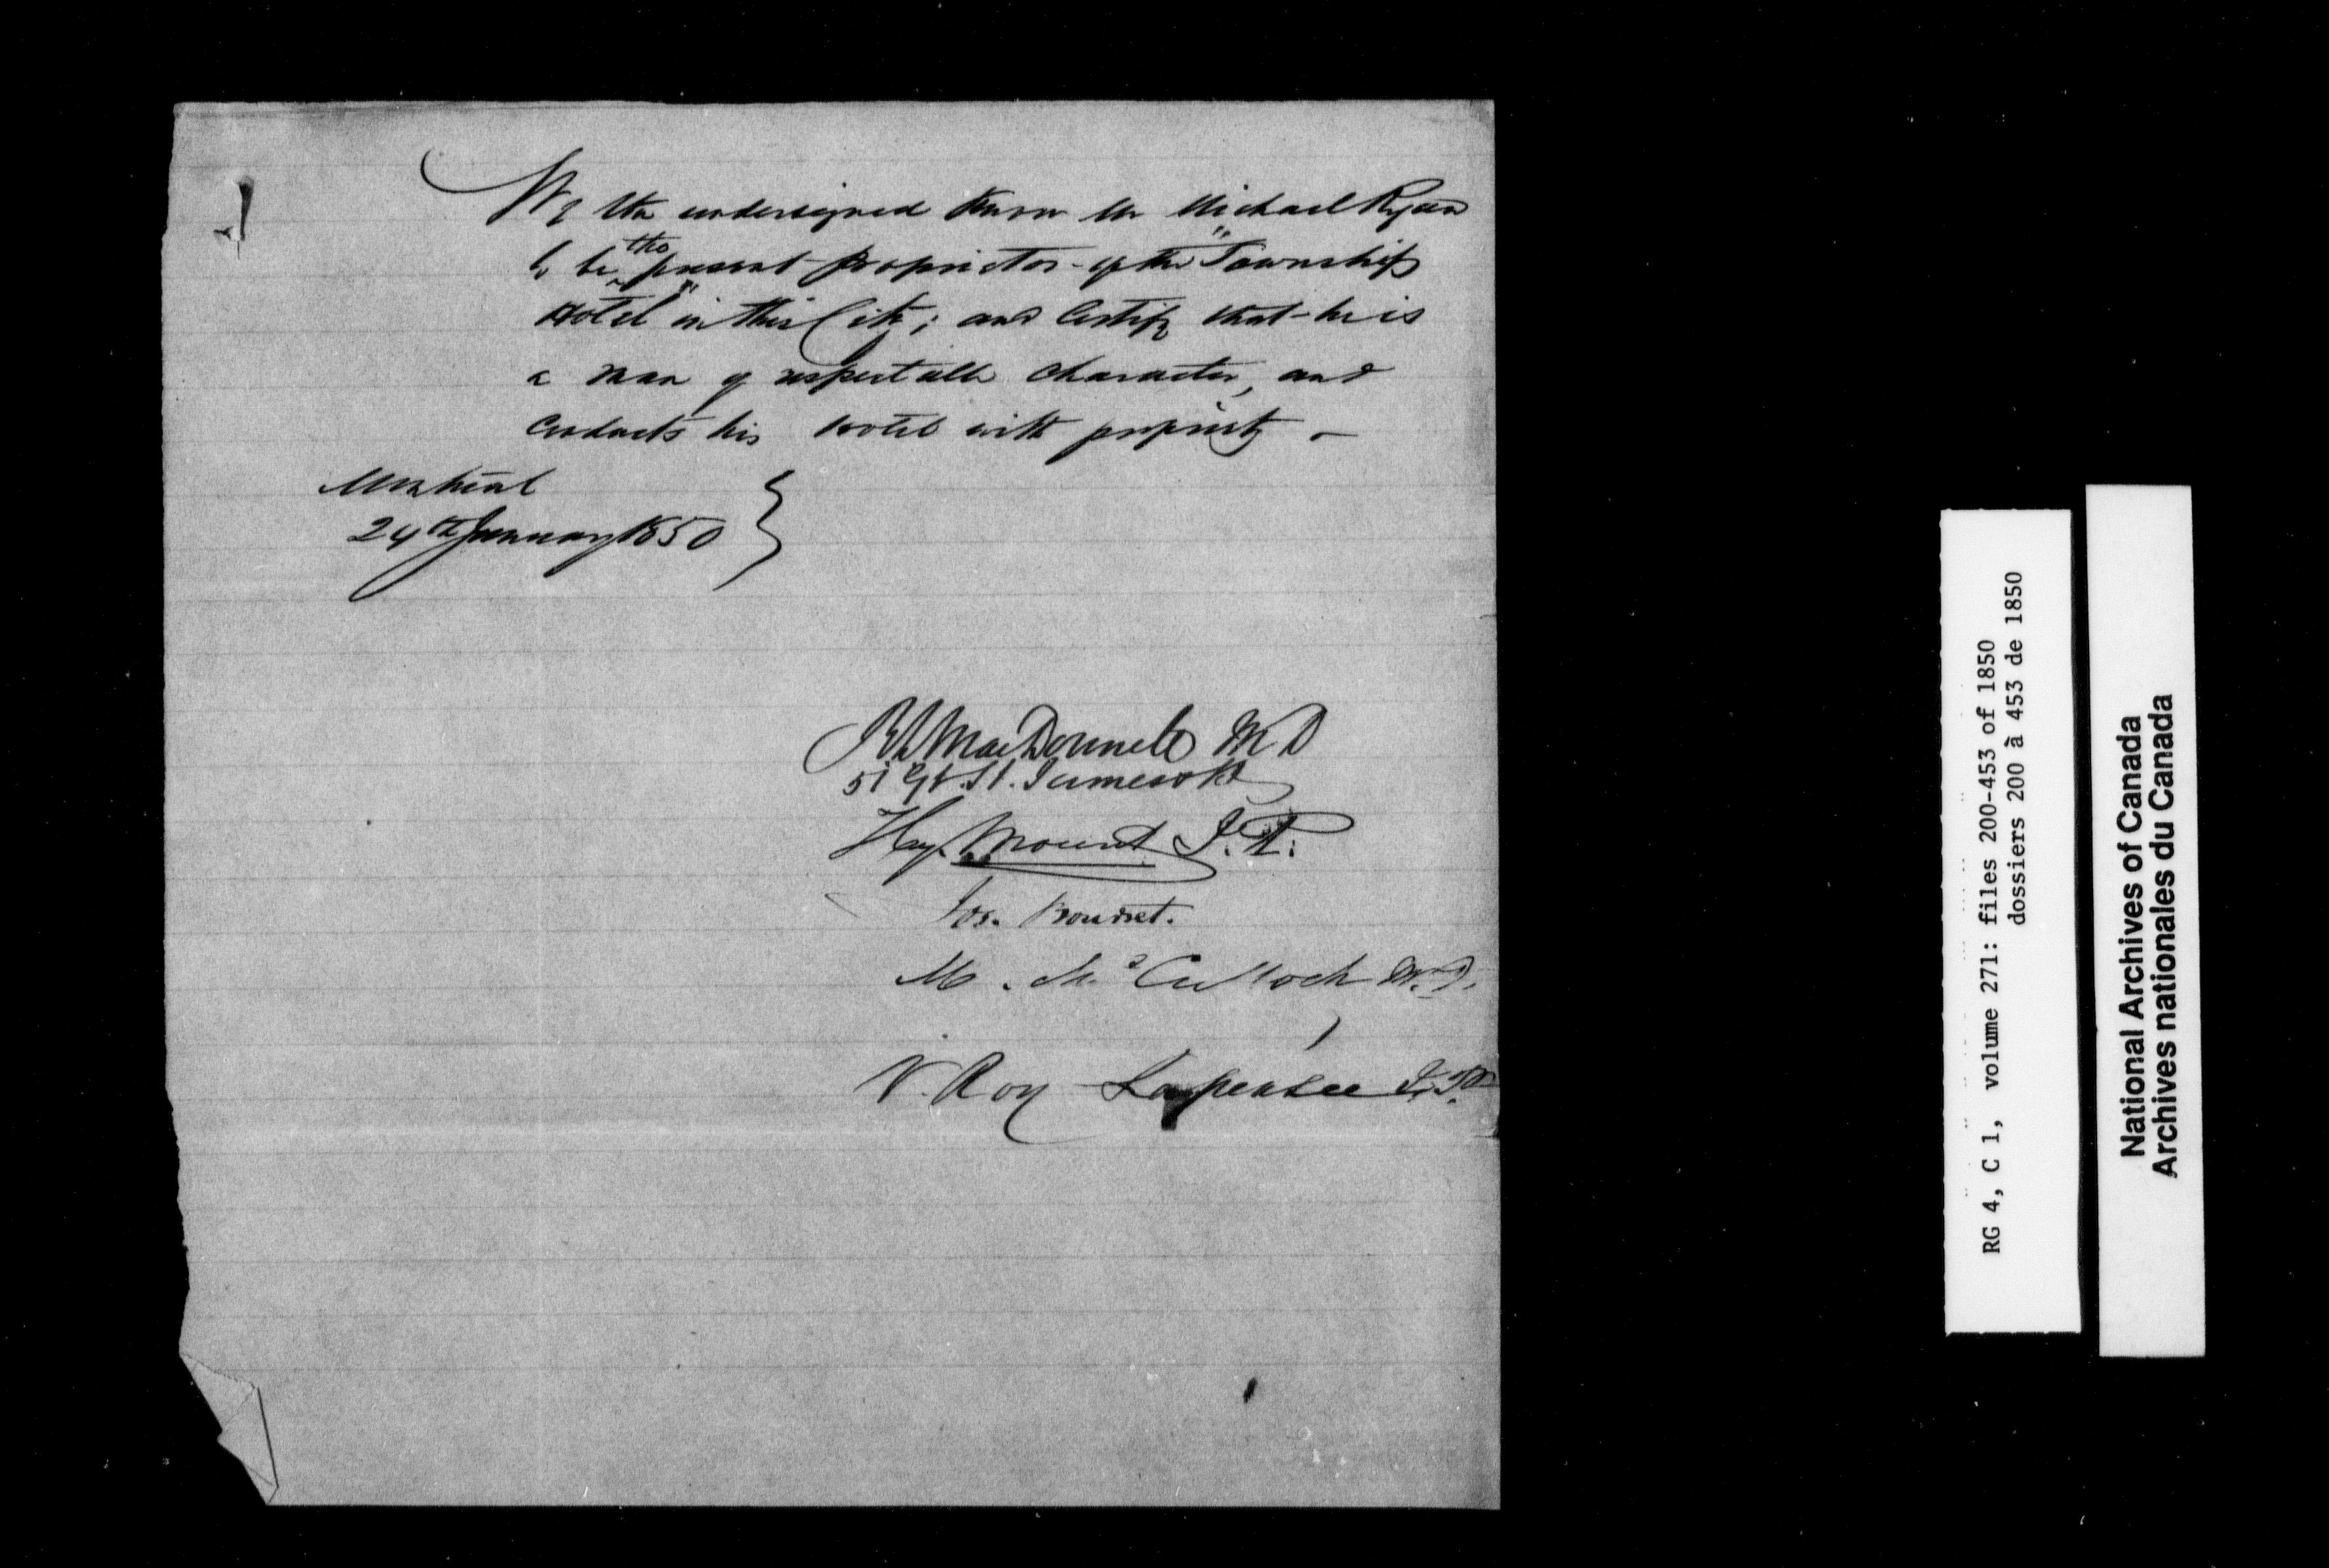 We the undersigned know Mr Michael Ryan
to be the present proprietor of the "Township
Hotel" in this City; and Certify that he is
a man of respectable character, and
Conducts his hotel with propriety –
Montreal
24th January 1850
R L MacDonnell M D
51 Gt. St. James St
Hy. Mount J.P.
Jos. Bourret.
M. McCulloch M.D.
V. Roy Lapensée J.P.
RG 4, C 1, volume 271: files 200-453 of 1850
dossiers 200 à 453 de 1850
National Archives of Canada
Archives nationales du Canada